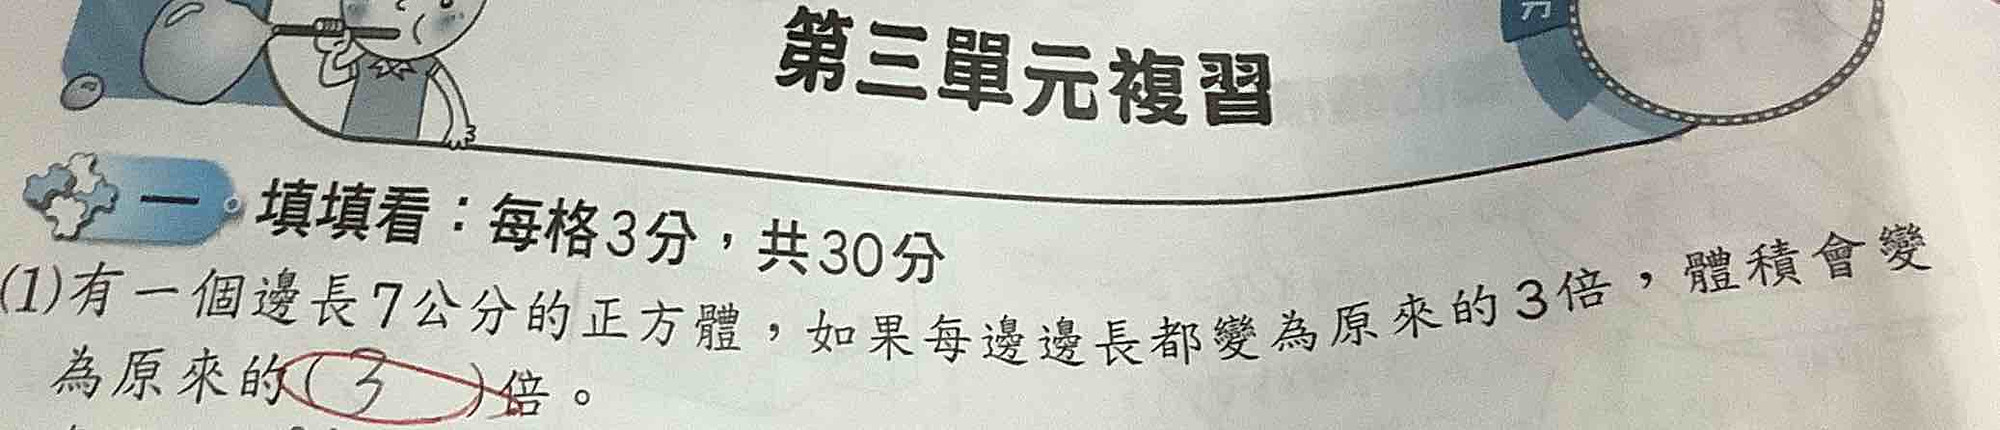 第三單元複習
一 填填看：每格3分，共30分
(1)有一個邊長7公分的正方體，如果每邊邊長都變為原來的3倍，體積會變
為原來的( 3 )倍。